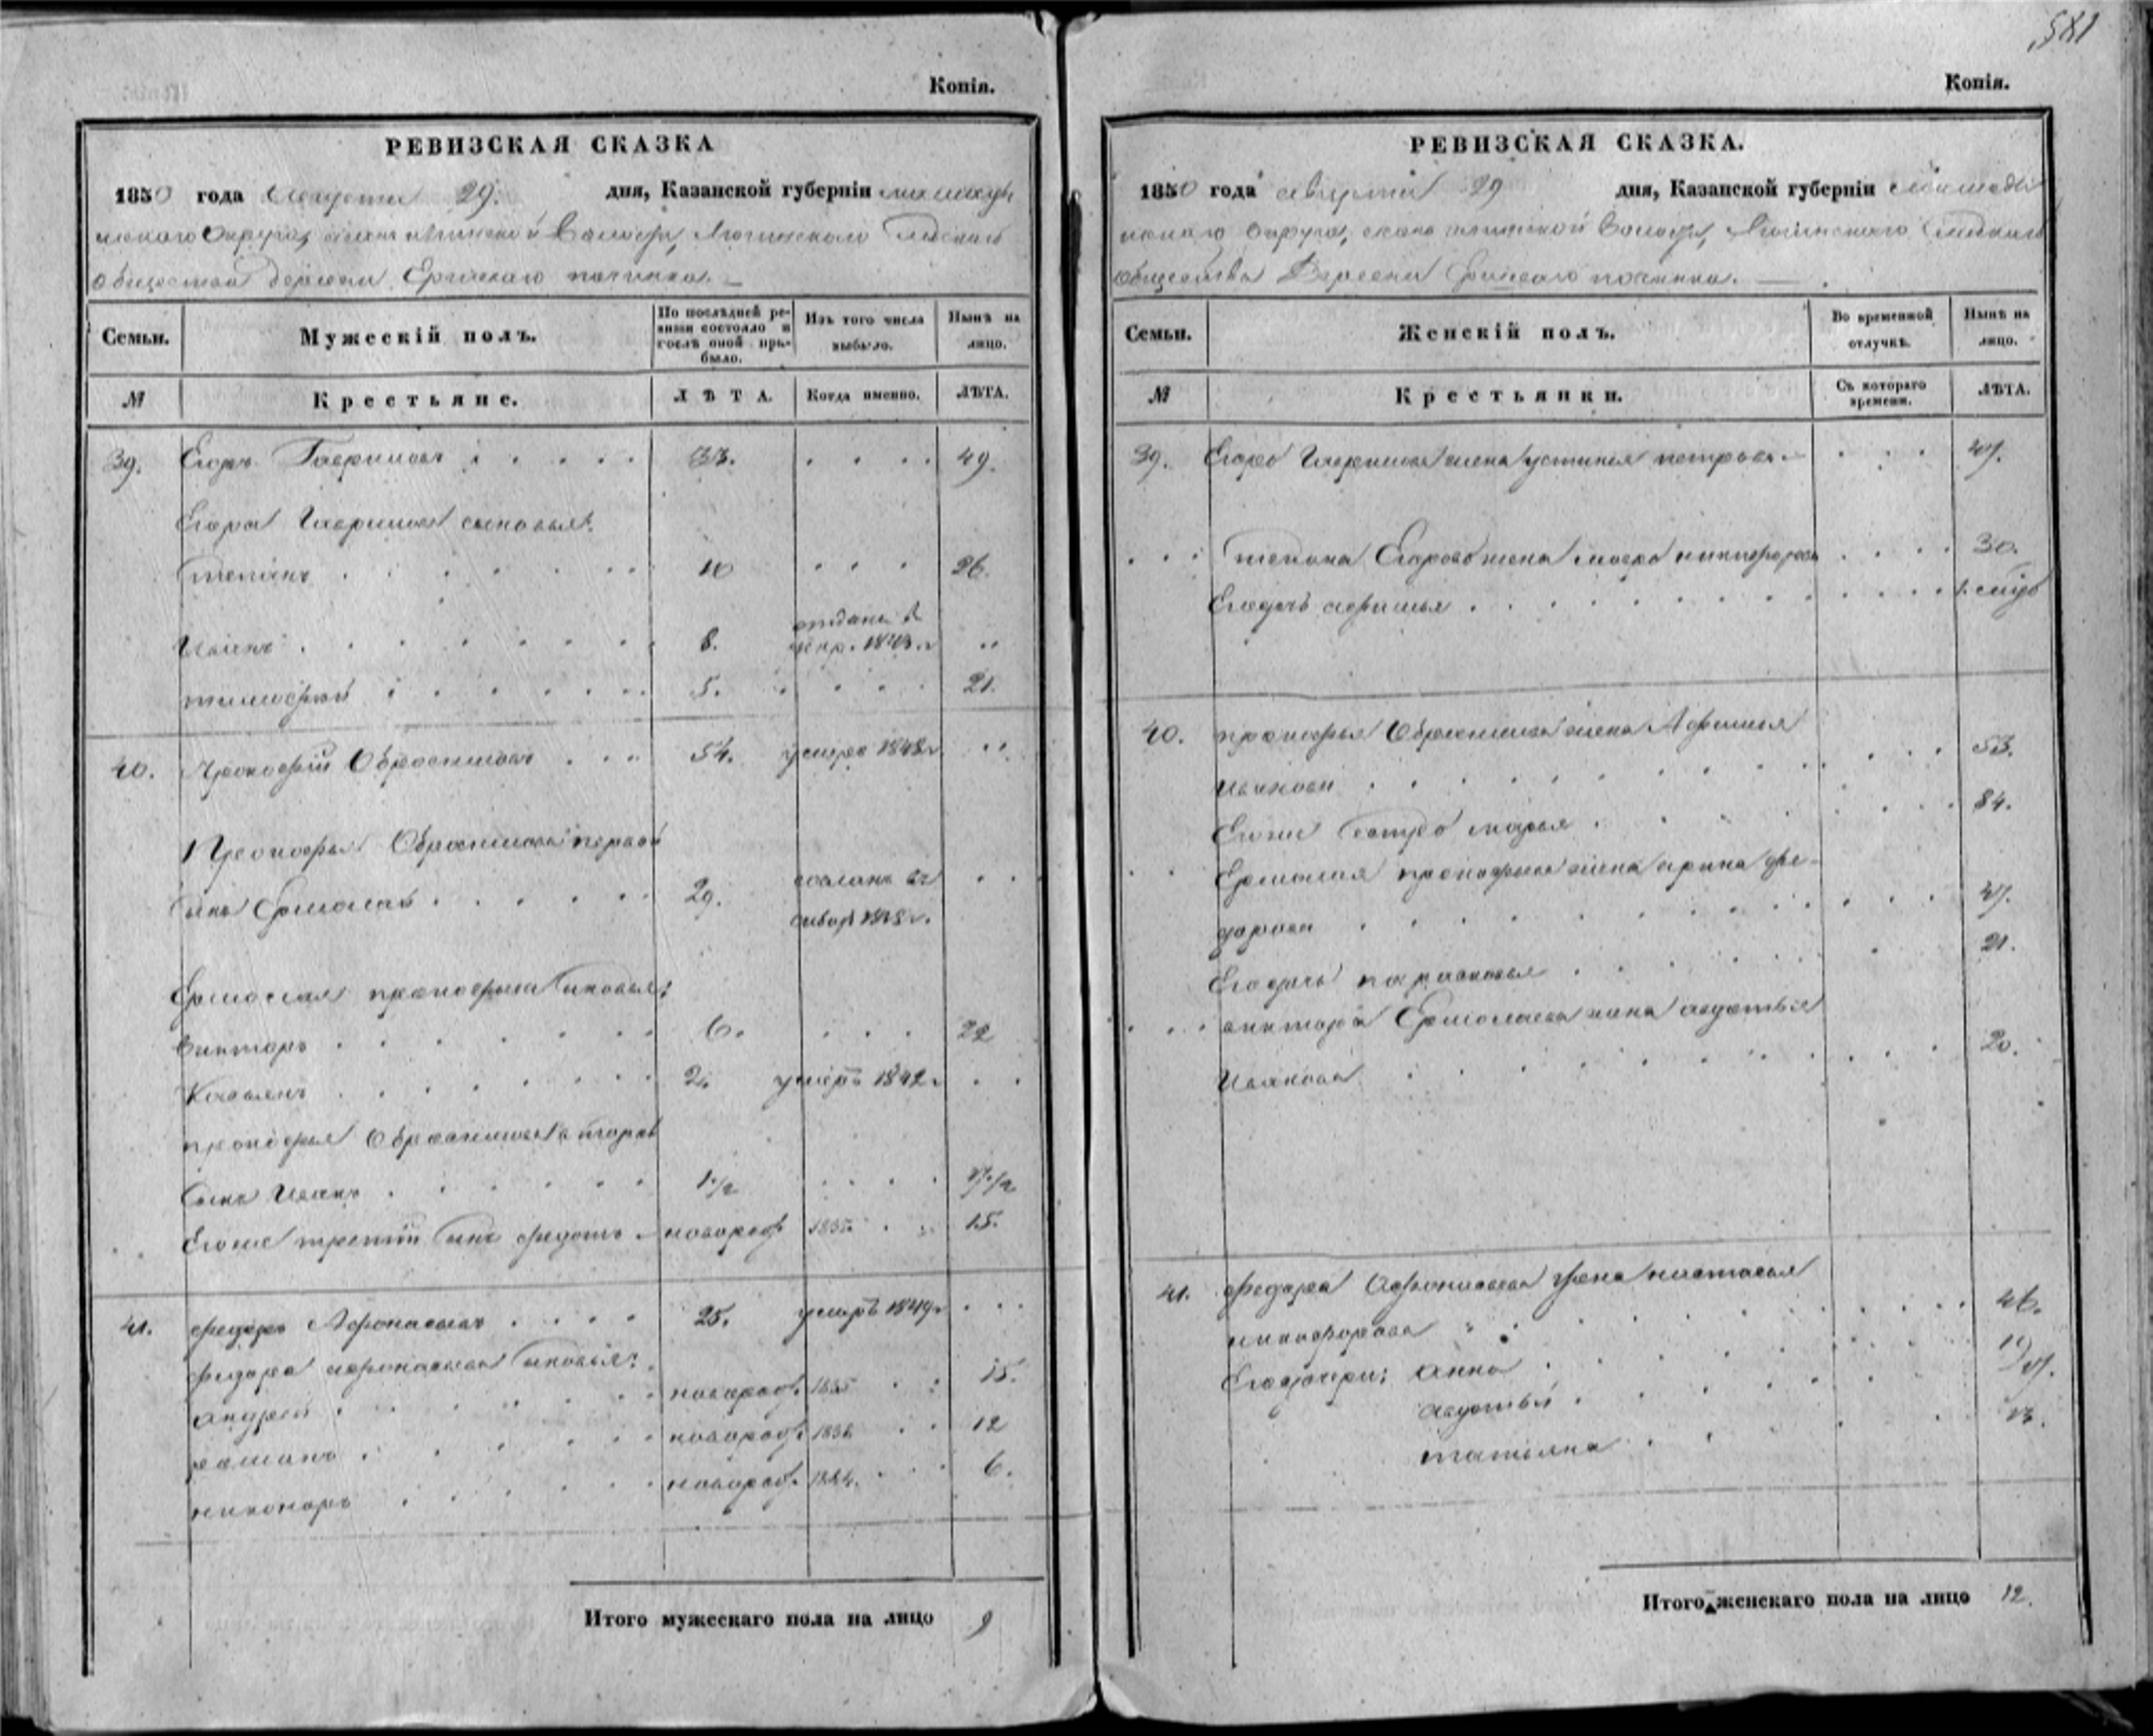 Копія.
РЕВИЗСКАЯ СКАЗКА
1850 года Августа 29. дня, Казанской губерніи
округа, волости,
общества деревни починка.
Семьи. Мужескій полъ. По послѣдней ревизіи состояло и послѣ оной прибыло. Изъ того числа выбыло. Нынѣ на лицо.
№ Крестьяне. ЛѢТА. Когда именно. ЛѢТА.
39. Егоръ Гавриловъ 33. 49.
Егора Гаврилова сыновья:
Степанъ 10 26.
отданъ в
Иванъ 8. рекр. 1843 г
тимофей 5. 21.
40. Прокофій Обросимовъ 54. умеръ 1848 г
Прокофья Обросимова первой
сынъ Ермолай 29. сосланъ въ
сибирь г.
Ермолая прокофьева сыновья:
Викторъ 6. 22
2. умеръ 1842 г
прокофья Обросимова второй
сынъ Иванъ 1 1/2 17 1/2
Егоже третій сынъ федотъ новорож 1835 15.
41. федоръ Афонасьевъ 25. умеръ 1849 г
федора афонасьева сыновья:
андрей новорож. 1835 15.
романъ новорож. 1838 12
никоноръ новорож. 1844. 6.
Итого мужескаго пола на лицо 9
581
Копія.
РЕВИЗСКАЯ СКАЗКА.
1850 года августа 29 дня, Казанской губерніи
округа, волости,
общества Деревни починка.
Семьи. Женскій полъ. Во временной отлучкѣ. Нынѣ на лицо.
№ Крестьянки. Съ котораго времени. ЛѢТА.
39. Егора Гаврилова жена устинья петрова 47.
Степана Егорова жена никифорова 30.
Егодочь афимья
40. прокофья Обросимова жена Афимья
Иванова 53.
Егоже сестра марья 84.
Ермолая прокофьева жена арина фе-
дорова 47.
Егодочь парасковья 21.
виктора Ермолаева жена авдотья
Иванова 20.
41. федора Афонасьева жена настасья
никифорова 46.
Егодочери: анна 19
авдотья 17.
татьяна 13.
Итого женскаго пола на лицо 12.